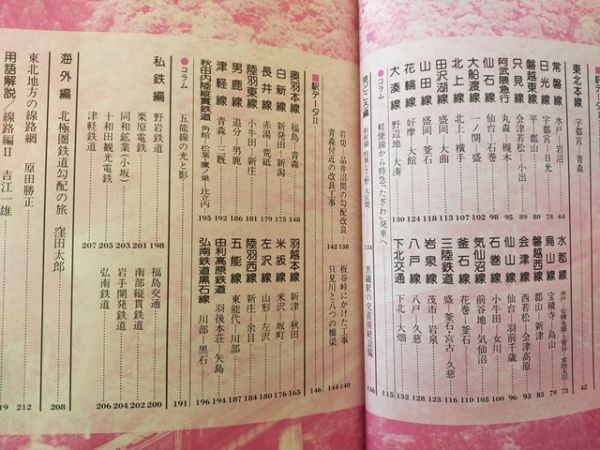 東北本線 宇都宮―青森
常磐線 水戸―岩沼 64
日光線 宇都宮―日光 78
磐越東線 平―郡山 80
只見線 会津若松―小出 89
阿武隈急行 丸森―槻木 95
仙石線 仙台―石巻 98
大船渡線 一ノ関―盛 102
北上線 北上―横手 107
田沢湖線 盛岡―大曲 111
山田線 盛岡―釜石 118
花輪線 好摩―大館 124
大湊線 野辺地―大湊 130
水郡線 42
烏山線 宝積寺―烏山 73
磐越西線 郡山―新津 79
会津線 西若松―会津高原 83
仙山線 仙台―羽前千歳 90
石巻線 小牛田―女川 96
気仙沼線 前谷地―気仙沼 100
釜石線 花巻―釜石 104
三陸鉄道 盛―釜石・宮古―久慈 110
岩泉線 茂市―岩泉 123
八戸線 八戸―久慈 128
下北交通 下北―大畑 132
●コラム
軽便線から特急“たざわ”発車へ 115
見どころ編
134
黒磯駅の交直接続設備 136
岩切―品井沼間の勾配改良 138
青森付近の改良工事 142
板谷峠にかけた工事 140
只見川と八つの橋梁 144
146
■駅データII
奥羽本線 福島―青森 148
白新線 新発田―新潟 175
長井線 赤湯―荒砥 179
陸羽東線 小牛田―新庄 181
男鹿線 追分―男鹿 186
津軽線 青森―三厩 192
秋田内陸縦貫鉄道 角館―松葉・鷹ノ巣―比立内 195
羽越本線 新津―秋田 165
米坂線 米沢―坂町 176
左沢線 山形―左沢 180
陸羽西線 新庄―余目 184
五能線 東能代―川部 187
由利高原鉄道 羽後本荘―矢島 194
弘南鉄道黒石線 川部―黒石 196
●コラム
五能線の光と影 191
私鉄編
野岩鉄道 198
栗原電鉄 201
同和鉱業(小坂) 203
十和田観光電鉄 205
津軽鉄道 207
福島交通 200
南部縦貫鉄道 202
岩手開発鉄道 204
弘南鉄道 206
海外編 北極圏鉄道勾配の旅 窪田太郎 208
東北地方の線路網 原田勝正 212
用語解説/線路編II 吉江一雄